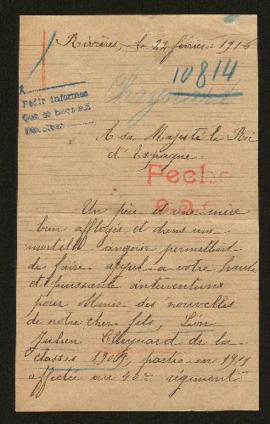 Rivières, le 22 février 1916
10814
Pedir informes
A sa Majesté le Roi
d'Espagne
Fecha
Un père et une mère
bien affligés et dans une
mortelle angoisse permettent
de faire appel a votre haute
et puissante interventions
pour obtenir des nouvelles
de notre cher fils, Léon
Julien Chagnard de la
classes 1909, partie en 1911
affectée au régiment